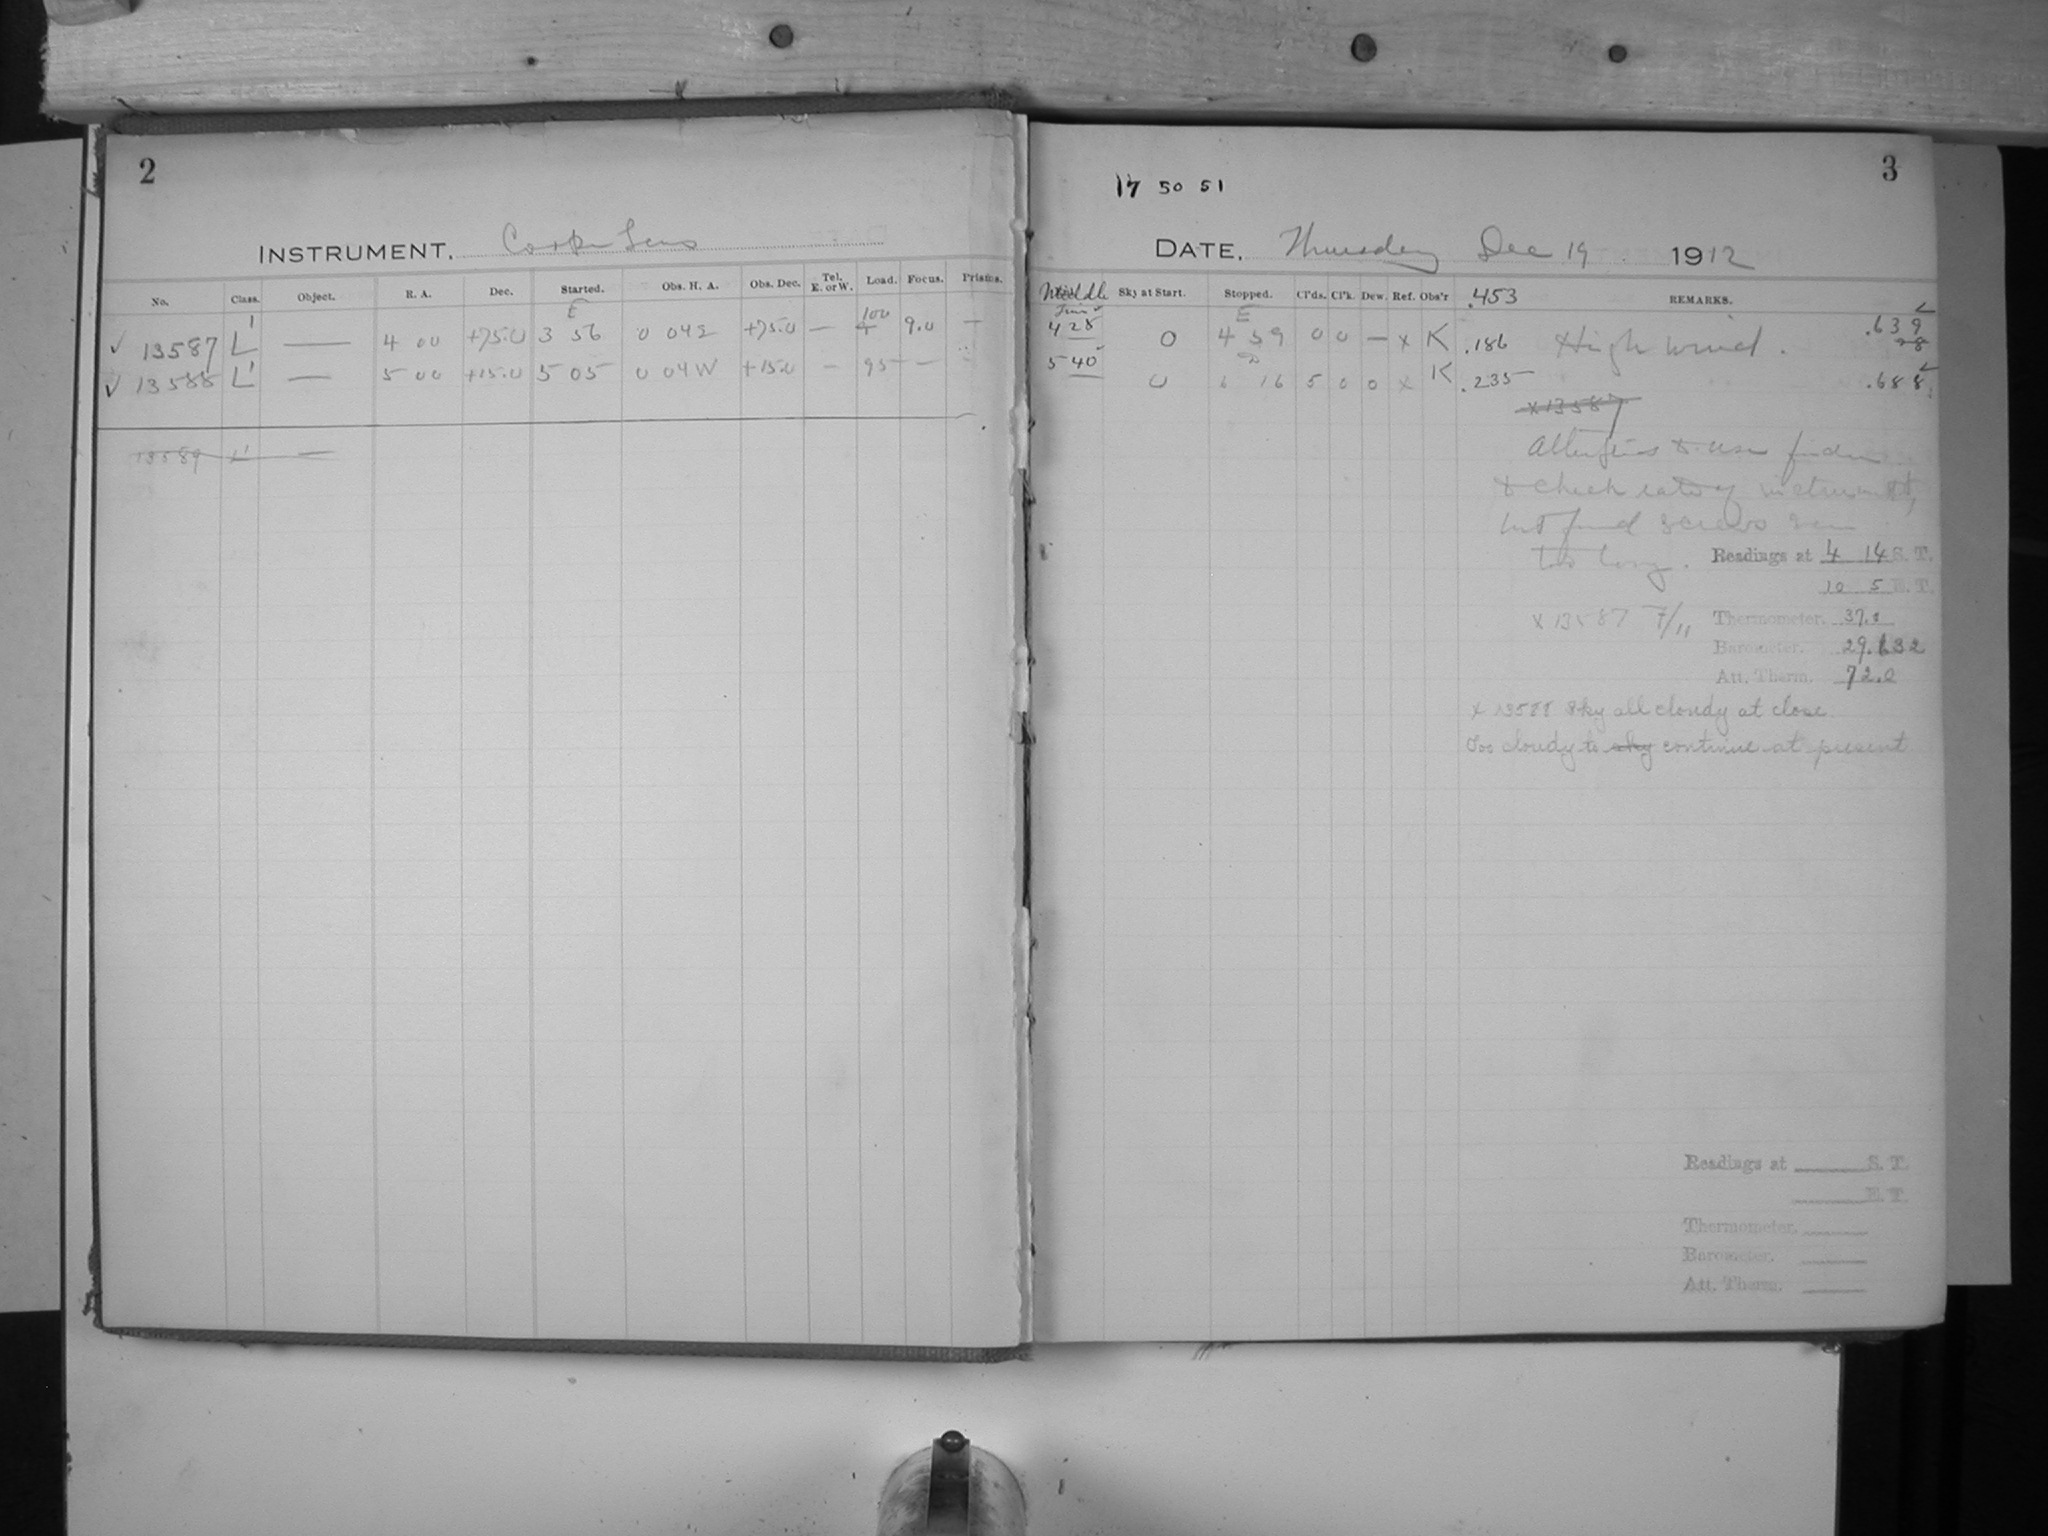 2
INSTRUMENT. Cooke Lens
No. Class. Object. R. A. Dec. Started. Obs. H. A. Obs. Dec. Tel. E. or W. Load. Focus. Prisms.
E 100
✓ 13587 L' — 4 00 +75.0 3 56 0 04 E +75.0 — 9.0 —
✓ 13588 L' — 5 00 +15.0 5 05 0 04 W +15.0 — 95 —
13589 L' —
3
17 50 51
DATE. Thursday Dec 19 1912
Middle Time Sky at Start. Stopped. Cl'ds. Cl'k. Dew. Ref. Obs'r .453 REMARKS.
4 28 0 E 4 59 0 0 — x K .186 High wind. .639
5 40 0 6 16 5 0 0 x K .235 .688
x 13587
to use finder
& check rate of instrument,
but find screws
too long.
Readings at 4 14 S. T.
10 5 E. T.
x 13587 F/11 Thermometer. 37.0
Barometer. 29.632
Att. Therm. 72.0
x 13588 Sky all cloudy at close
Too cloudy to sky continue at present
Readings at S. T.
E. T.
Thermometer.
Barometer.
Att. Therm.